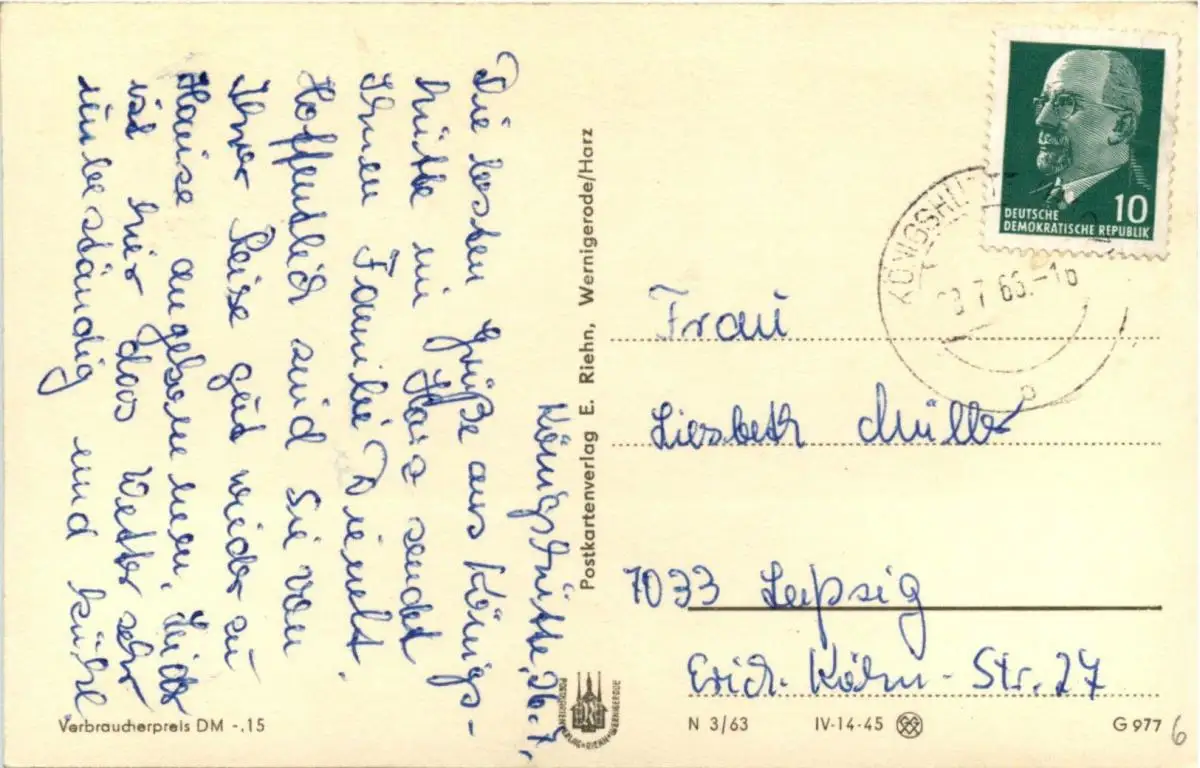 Königshütte, 26.7.
Die besten Grüße aus Königs-
hütte im Harz sendet
Ihnen Familie Dienelt.
Hoffentlich sind Sie von
Ihrer Reise gut wieder zu
Hause angekommen. Leider
ist hier das Wetter sehr
unbeständig und kühl.
Postkartenverlag E. Riehn, Wernigerode/Harz
Verbraucherpreis DM -.15
10
DEUTSCHE
DEMOKRATISCHE REPUBLIK
Frau
Liesbeth Müller
7033 Leipzig
Erich-Köhn-Str. 27
N 3/63 IV-14-45 G 977 6